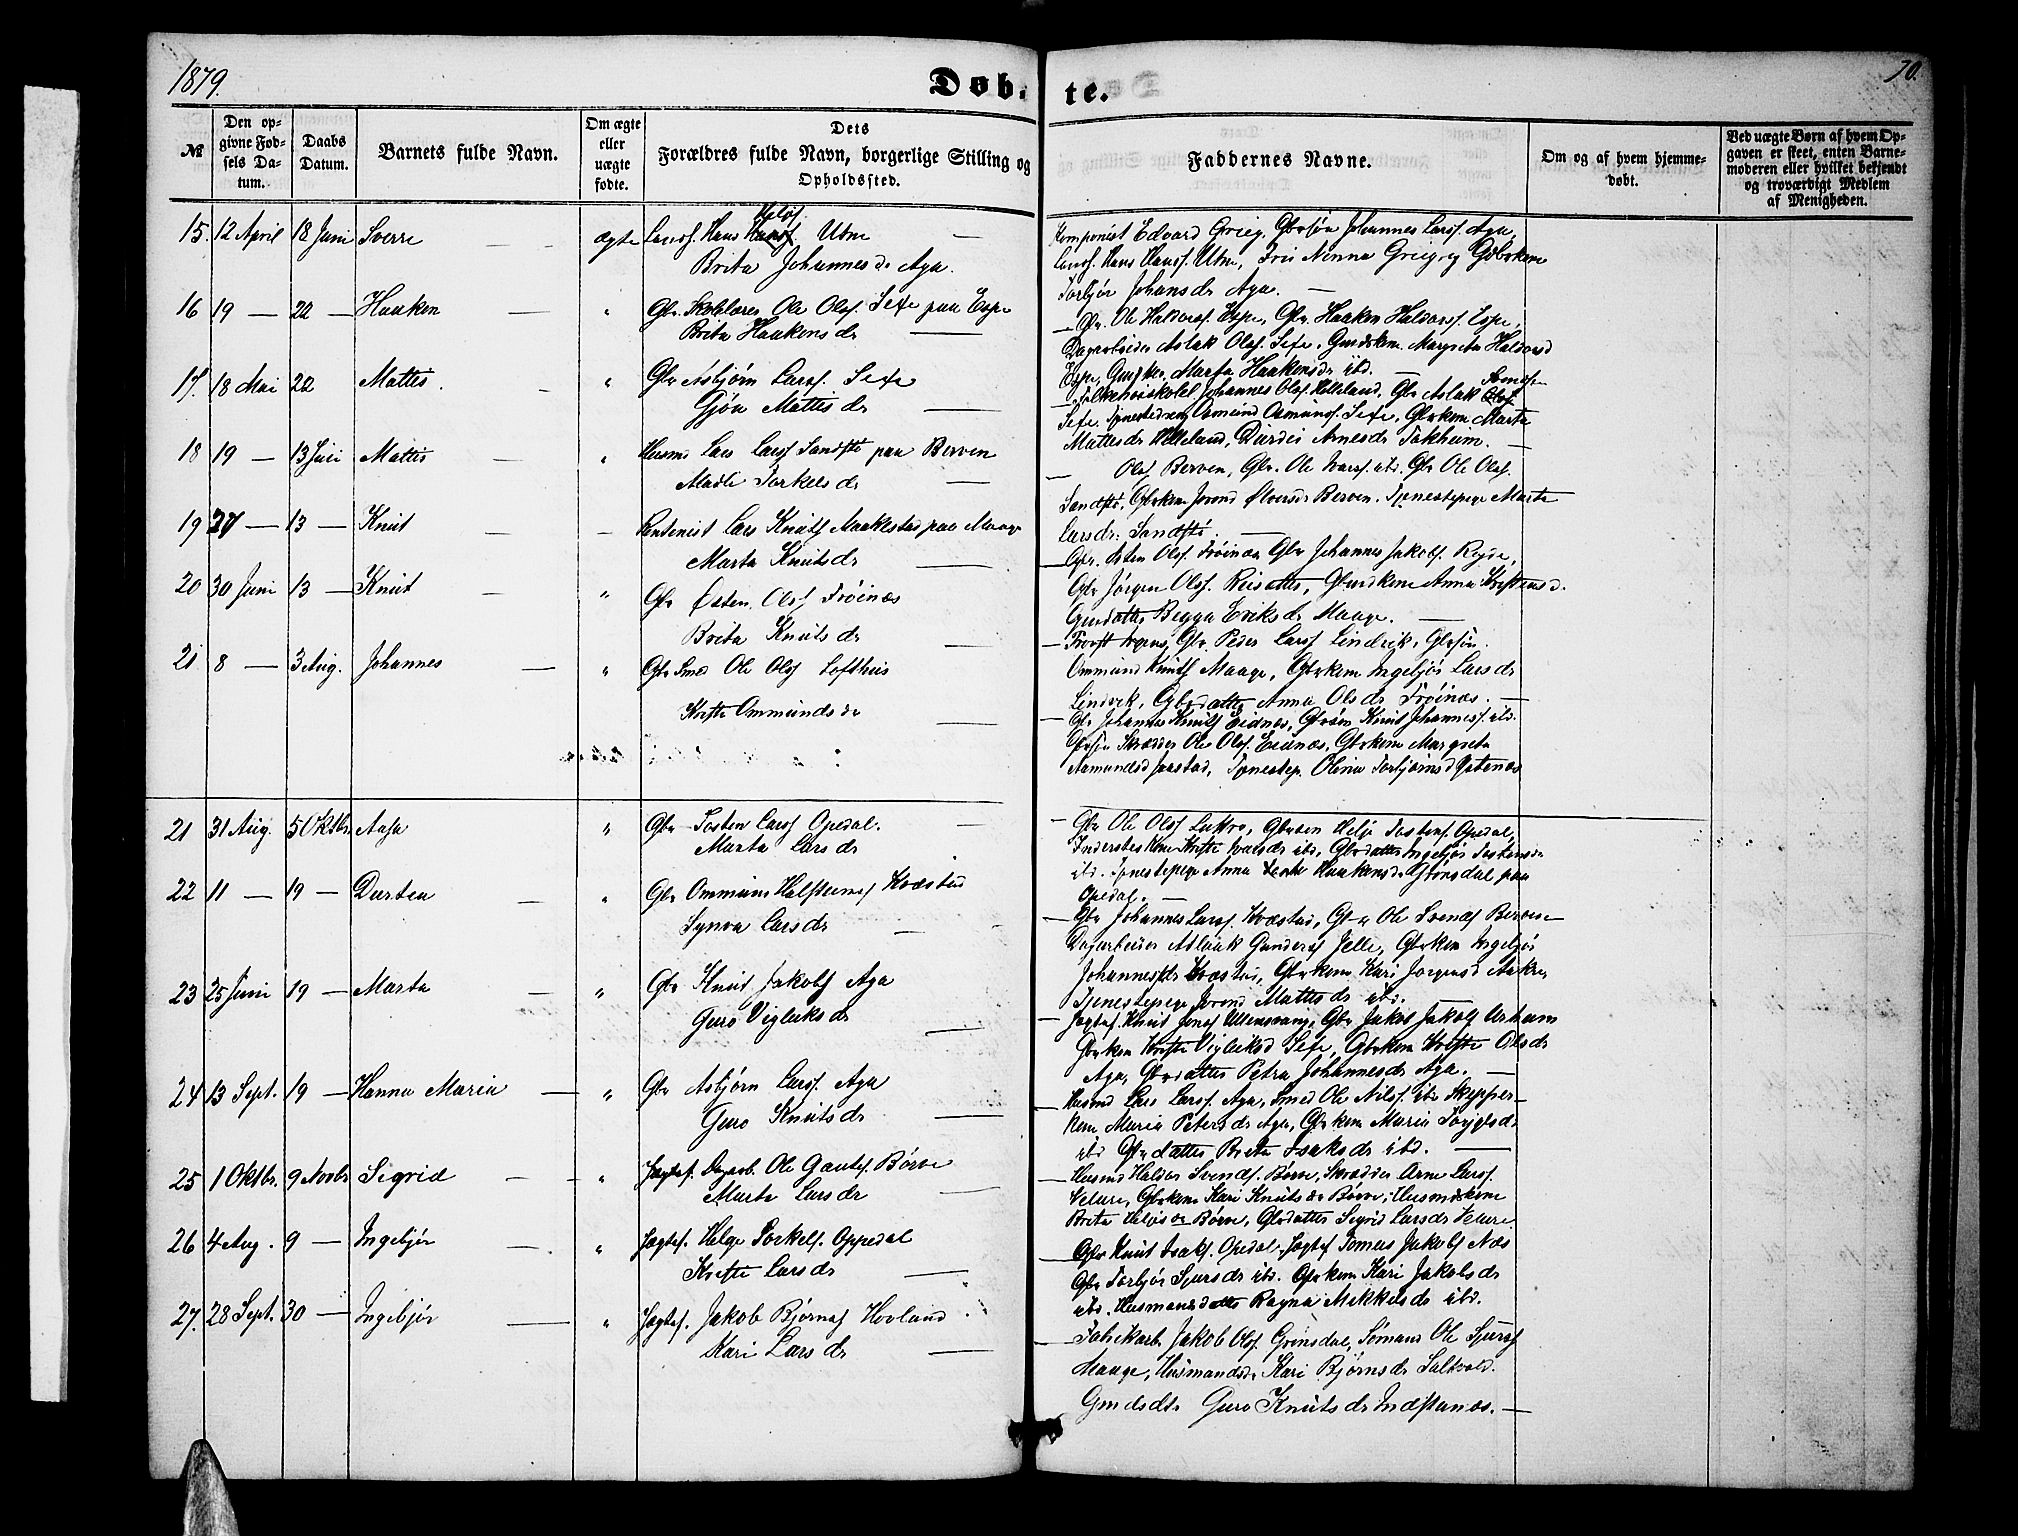 1879.
Døbte.
70.
№
Den opgivne Fødsels Datum.
Daabs Datum.
Barnets fulde Navn.
Om ægte eller uægte fødte.
Dets Forældres fulde Navn, borgerlige Stilling og Opholdssted.
Faddernes Navne.
Om og af hvem hjemmedøbt.
Ved uægte Børn af hvem Opgaven er skeet, enten Barnemoderen eller hvilket bekjendt og troværdigt Medlem af Menigheden.
15. 12 April 18 Juni Sverre — ægte Landh. Hans Heljes. Utne —
Brita Johannesdr Aga.
Komponist Edvard Grieg, Gbrsøn Johannes Larss. Aga,
Landh. Hans Hanss. Utne, Fru Ninna Grieg og Gbrkone
Torbjør Johansdr Aga. —
16 19 — 22 — Haaken — " Gbr. Skolelærer Ole Olsf. Sexe paa Espe
Brita Haakensdr —
— Gbr. Ole Haldorsf. Espe, Gbr. Haaken Haldorsf. Espe,
Dagarbeider Aslak Olsf. Sexe, Gmdskone Margreta Haldorsd
Espe, Marta Haakensdr ibd. —
17. 18 Mai 22 Mattis. — " Gbr Asbjørn Larsf. Sexe
Gjøa Mattisdr —
Johannes Olsf. Helleland, Gbr Aslak
Sexe, Tjenestedreng Osmund Osmundsf. Sexe, Gbrkone Marta
Mattisdr Helleland, Durdei Arnesdr Tokheim. —
18 19 — 13 Juli Mattis — " Husmd Lars Larsf Sandstø paa Berven
Madli Torkelsdr —
— Olsf Berven, Gbr. Ole Ivarsf. ibd, Gbr Ole Olsf.
Sandstø, Gbrkone Jorond Ølversdr Berven. Tjenestepige Marta
Larsdr. Sandstø. —
19 27 — 13 — Knut — — Rentenist Lars Knutsf Maakestad paa Maage
Marta Knutsdr —
— Gbr. Osten Olsf. Frøinæs Gbr Johannes Jakobsf. Reyse,
Gbr Jørgen Olsf. Reisæter, Gmdkone Anna Kristensd.
Gmdatter Begga Eriksdr Maage. —
20 30 Juni 13 — Knut — " Gbr Østen Olsf Frøinæs
Brita Knutsdr —
— Gbr. Peder Larsf Lindvik, Gbrsøn
Ommund Knutsf Maage, Gbrkone Ingebjør Larsdr
Lindvik, Gbrdatter Anna Olsdr Frøinæs. —
21 8 — 3 Aug. Johannes — " Gbr Smed Ole Olsf Lofthus
Kristi Ommundsdr —
— Gbr Johannes Knutsf Eidnæs, Gbrsøn Knut Johannesf. ibd.
Gbrsøn Skrædder Ole Olsf. Eidnæs, Gbrkone Margreta
Aamundsd Jaastad, Tjenestep. Olina Torbjørnsd Ystenæs
21 31 Aug. 5 Oktbr. Aasa " Gbr Tosten Larsf Opedal. —
Marta Larsdr
— Gbr Ole Olsf Lutro, Gbrsøn Helje Tostensf. Opedal,
Inderstes Kone Kristi Ivarsdr ibd, Gbrdatter Ingebjør Tostensdr
ibd. Tjenestepige Anna Haakensdr Grønsdal paa
Opedal. —
22 11 — 19 — Durtea — " Gbr Ommund Halstensf Kvæstad
Synva Larsdr —
— Gbr Johannes Larsf. Kvæstad, Gbr Ole Svendsf Berven
Dagarbeider Aslak Gundersf Jelle, Gbrkone Ingebjør
Johannesdr Kvæstad, Gbrkone Kari Jørgensd Aakre,
Tjenestepige Jorond Mattisdr ibd. —
23 25 Juni 19 — Marta — " Gbr Knut Jakobsf Aga
Guro Vigleiksdr —
— Jagtef. Knut Jonsf Ullensvang, Gbr Jakob Jakobsf Urheim
Gbrkone Kristi Vigleiksd Sexe, Gbrkone Kristi Olsdr
Aga, Gbrdatter Petra Johannesdr Aga. —
24 13 Sept. 19 — Hanna Maria — " Gbr Asbjørn Larsf. Aga
Guro Knutsdr —
— Husmd Lars Larsf. Aga, Smed Ole Nilsf. ibd, Skipperkone
Maria Petersdr Aga, Gbrkone Maria
ibd Gbrdatter Brita Isaksdr ibd. —
25 1 Oktbr. 9 Novbr Sigrid — " Jagtef. Dagarb. Ole Gautsf. Børve
Marta Larsdr —
— Husmd Haldor Svendsf. Børve, Skrædder Arne Larsf.
Velure, Gbrkone Kari Knutsdr Børve, Husmdskone
Brita Heljesdr Børve, Gbrdatter Sigrid Larsdr Velure.
26 4 Aug. 9 — Ingebjør — " Jagtef. Helge Torkelsf. Oppedal
Kristi Larsdr —
— Gbr Knut Isaksf. Opedal, Jagtef Tomas Jakobsf Næs
Gbr Torbjør Sjursdr ibd. Gbrkone Kari Jakobsdr
ibd. Husmandsdatter Ragna Mikkelsdr ibd.
27. 28 Sept. 30 — Ingebjør — " Jagtef. Jakob Bjørnsf Hovland
Kari Larsdr —
— Fabrikarb. Jakob Olsf. Grønsdal, Sømand Ole Sjursf
Maage, Husmandsdr Kari Bjørnsdr Saltvold.
Gmdsdtr Guro Knutsdr Indstenæs. —